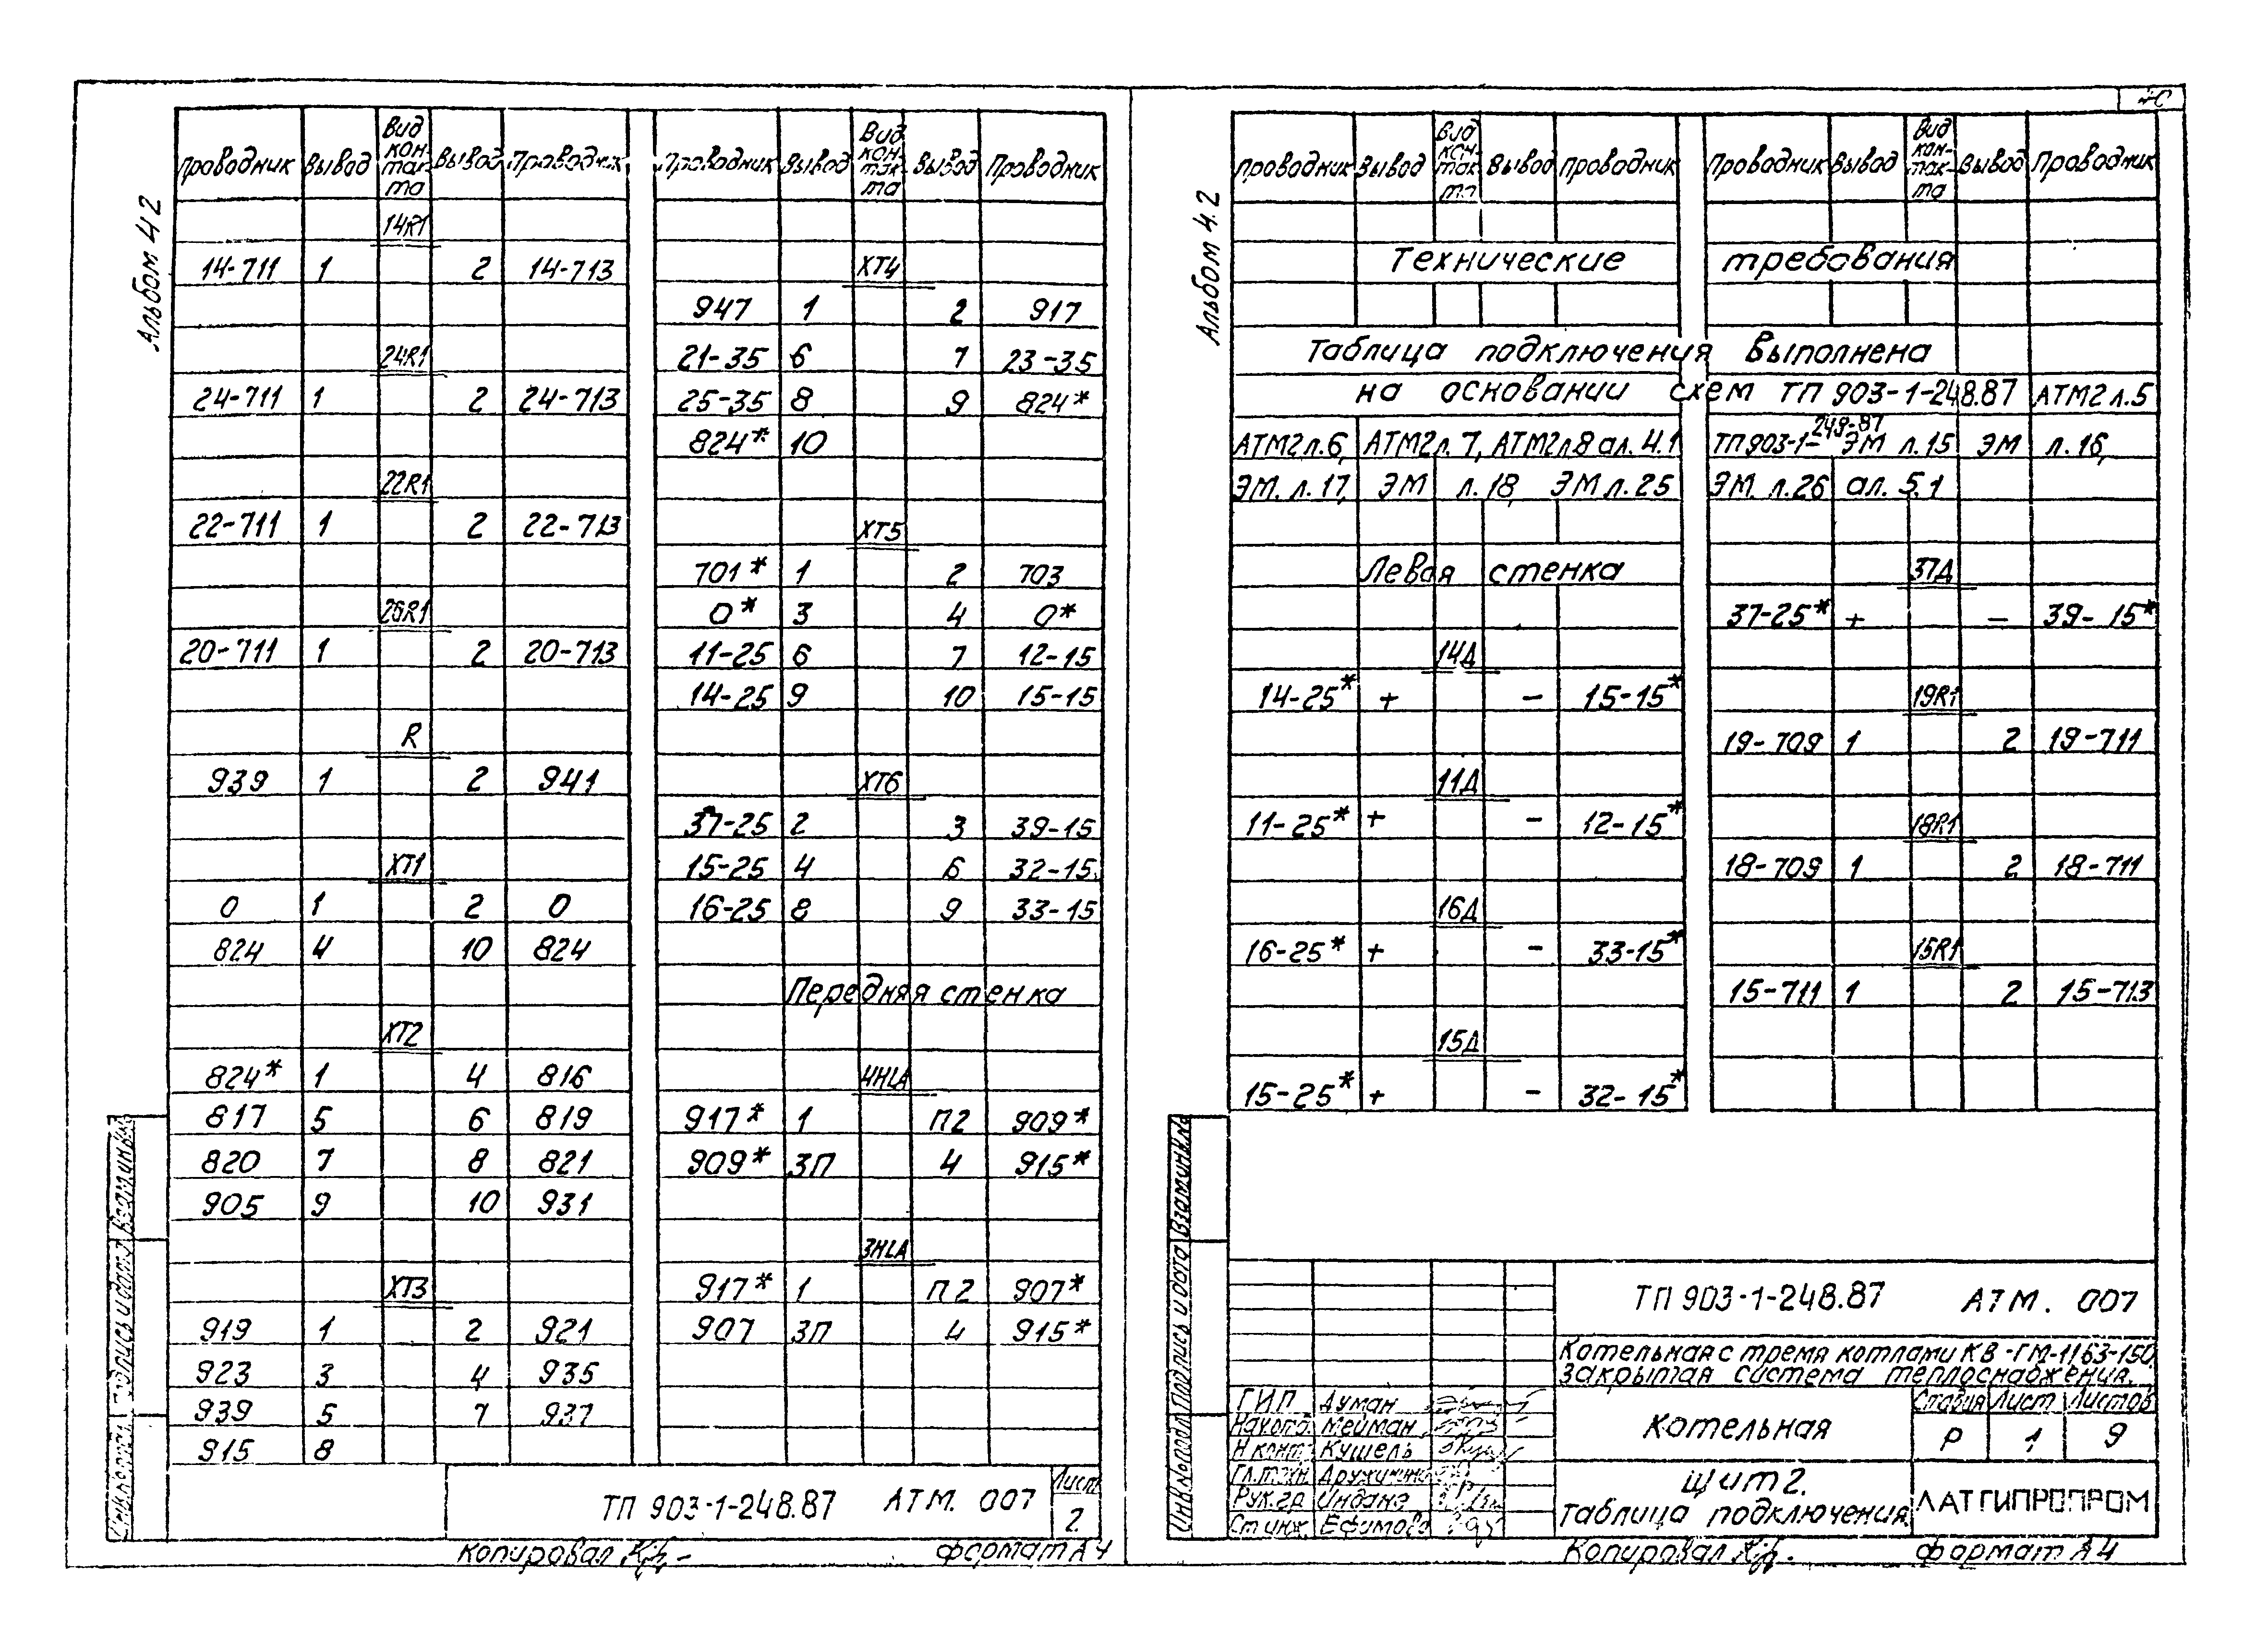 Альбом 4 2
Проводник Вывод Вид кон-так-та Вывод Проводник
14R1
14-711 1 2 14-713
24R1
24-711 1 2 24-713
22R1
22-711 1 2 22-713
20-711 1 2 20-713
R
939 1 2 941
ХТ1
0 1 2 0
824 4 10 824
ХТ2
824* 1 4 816
817 5 6 819
820 7 8 821
905 9 10 931
ХТ3
919 1 2 921
923 3 4 935
939 5 7 937
915 8
Проводник Вывод Вид кон-так-та Вывод Проводник
ХТ4
947 1 2 917
21-35 6 7 23-35
25-35 8 9 824*
824* 10
ХТ5
701* 1 2 703
0* 3 4 0*
11-25 6 7 12-15
14-25 9 10 15-15
ХТ6
37-25 2 3 39-15
15-25 4 6 32-15
16-25 8 9 33-15
Передняя стенка
4HLA
917* 1 П2 909*
909* 3П 4 915*
3HLA
917* 1 П2 907*
907 3П 4 915*
ТП 903-1-248.87 АТМ. 007
Лист
2
Копировал
формат А4
Альбом 4.2
Проводник Вывод Вид кон-так-та Вывод Проводник
Проводник Вывод Вид кон-так-та Вывод Проводник
Технические требования
Таблица подключения выполнена
на основании схем ТП 903-1-248.87 АТМ2 л.5
АТМ2 л.6, АТМ2 л. 7, АТМ2 л.8 ал. 4.1 ТП 903-1-248-87 ЭМ л. 15 ЭМ л. 16,
ЭМ. л. 17, ЭМ л. 18, ЭМ л. 25 ЭМ. л. 26 ал. 5.1
Левая стенка
14Д
14-25* + - 15-15*
11Д
11-25* + - 12-15*
16Д
16-25* + - 33-15*
15Д
15-25* + - 32-15*
37Д
37-25* + - 39-15*
19R1
19-709 1 2 19-711
18R1
18-709 1 2 18-711
15R1
15-711 1 2 15-713
Взам.инв.№
Подпись и дата
Инв.№ подл.
ТП 903-1-248.87 АТМ. 007
Котельная с тремя котлами КВ-ГМ-11,63-150.
Закрытая система теплоснабжения.
ГИП Думан
Нач.отд. Мейман
Н.конт. Кушель
Рук.гр. Индане
Ст инж. Ефимова
Котельная
Стадия Лист Листов
Р 1 9
Щит 2.
Таблица подключения
ЛАТГИПРОПРОМ
Копировал
формат А4